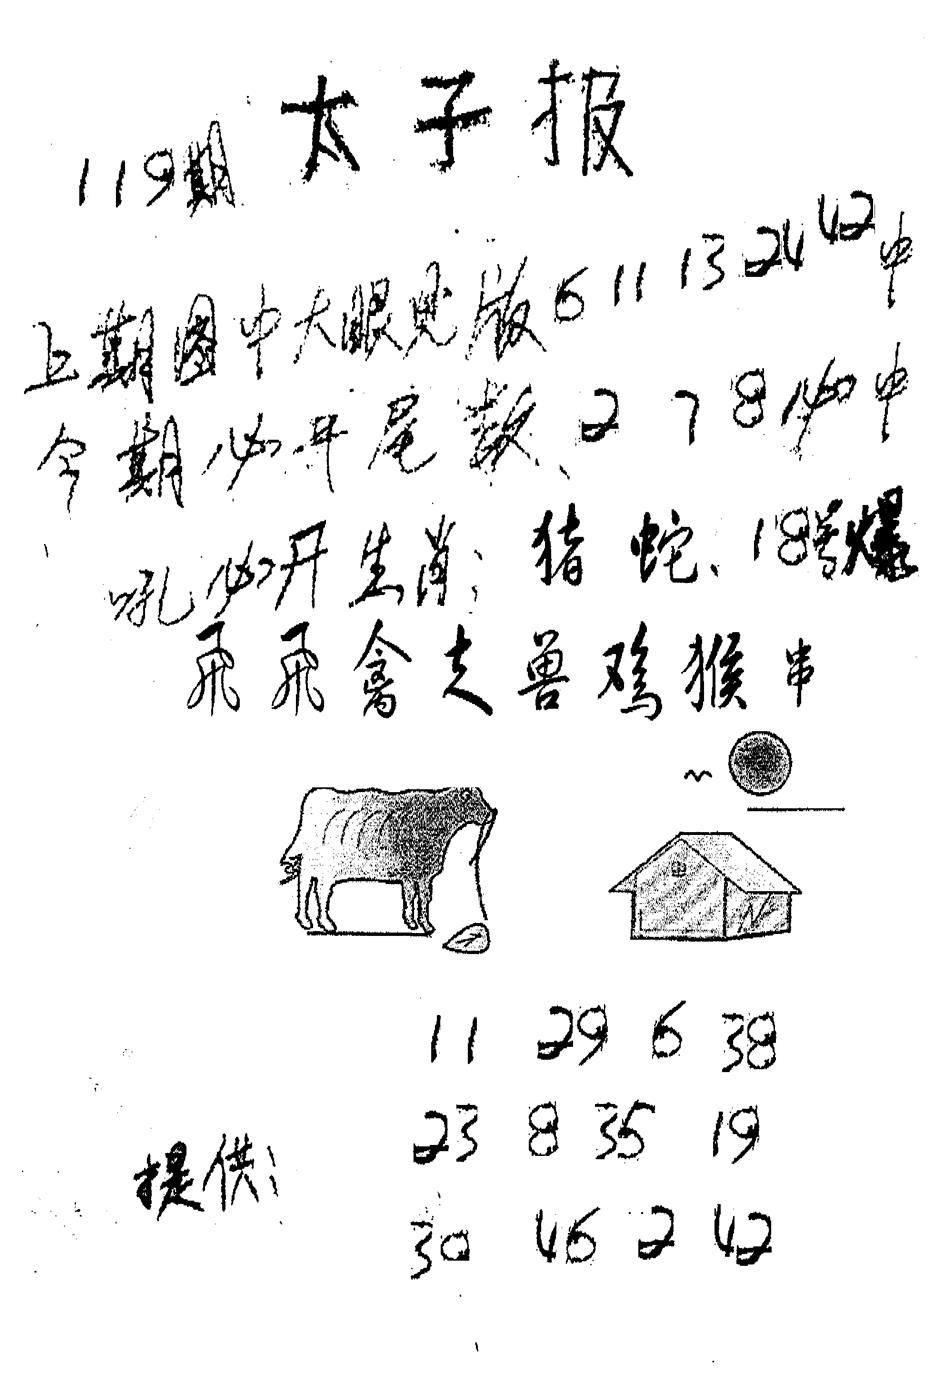 太子报
119期
上期图中大眼见版 6 11 13 24 42 中
今期必开尾数、2 7 8 必中
吼必开生肖: 猪 蛇、18号爆
飛飛禽走兽鸡猴串
11 29 6 38
23 8 35 19
提供:
30 46 2 42